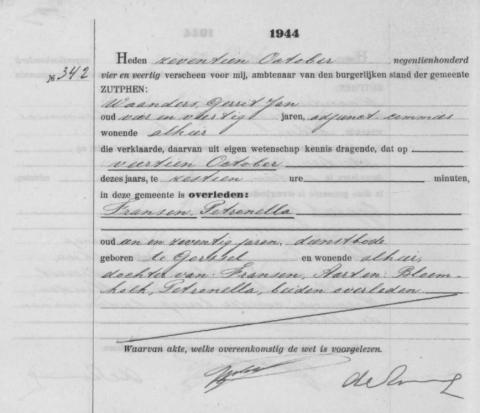 1944
No. 342
Heden zeventien October negentienhonderd
vier en veertig verscheen voor mij, ambtenaar van den burgerlijken stand der gemeente
ZUTPHEN:
Waanders, Gerrit Jan
oud vier en veertig jaren, adjunct commies
wonende alhier
die verklaarde, daarvan uit eigen wetenschap kennis dragende, dat op
veertien October
dezes jaars, te zestien ure minuten,
in deze gemeente is overleden:
Fransen, Petronella
oud een en zeventig jaren, dienstbode
geboren te Gorssel en wonende alhier,
dochter van Fransen, Aart en Bloem-
holk, Petronella, beiden overleden
Waarvan akte, welke overeenkomstig de wet is voorgelezen.